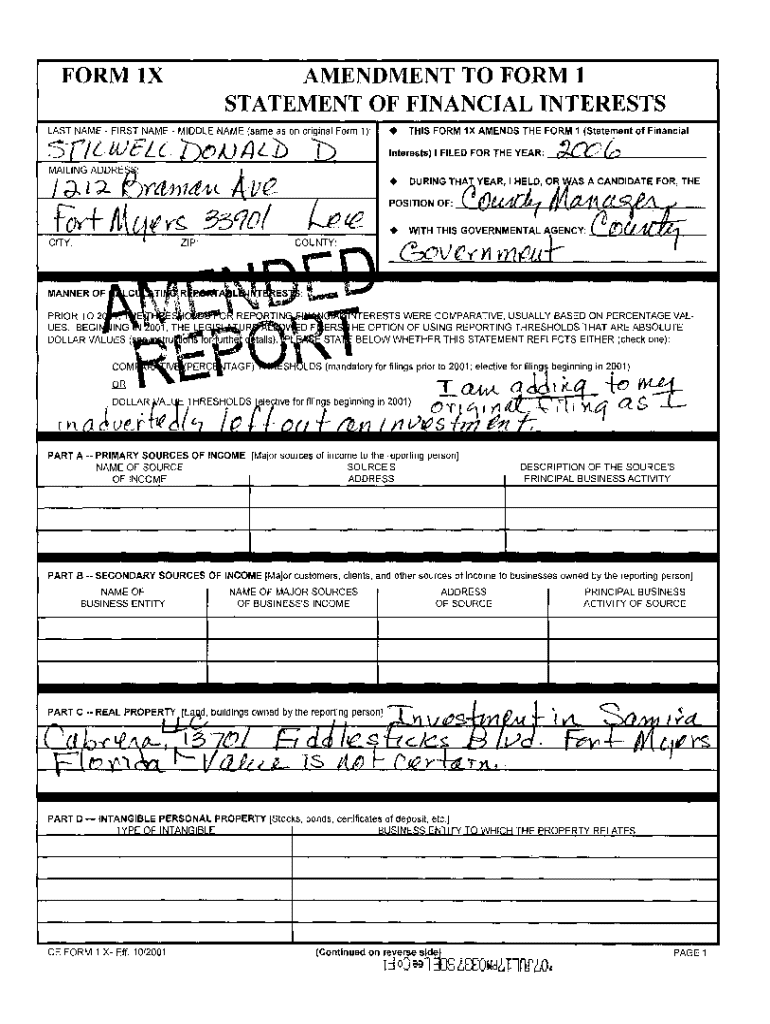 FORM 1X
AMENDMENT TO FORM 1
STATEMENT OF FINANCIAL INTERESTS
LAST NAME - FIRST NAME - MIDDLE NAME (same as on original Form 1):
STILWELL DONALD D
MAILING ADDRESS:
1212 Braman Ave
Fort Myers 33901 Lee
CITY: ZIP: COUNTY:
◆ THIS FORM 1X AMENDS THE FORM 1 (Statement of Financial
Interests) I FILED FOR THE YEAR: 2006
◆ DURING THAT YEAR, I HELD, OR WAS A CANDIDATE FOR, THE
POSITION OF: County Manager
◆ WITH THIS GOVERNMENTAL AGENCY: County
Government
AMENDED
REPORT
MANNER OF CALCULATING REPORTABLE INTERESTS:
PRIOR TO THRESHOLDS FOR REPORTING FINANCIAL INTERESTS WERE COMPARATIVE, USUALLY BASED ON PERCENTAGE VAL-
UES. BEGINNING IN 2001, THE LEGISLATURE FILERS THE OPTION OF USING REPORTING THRESHOLDS THAT ARE ABSOLUTE
DOLLAR VALUES (see instructions for further details). PLEASE STATE BELOW WHETHER THIS STATEMENT REFLECTS EITHER (check one):
COMPARATIVE (PERCENTAGE) THRESHOLDS (mandatory for filings prior to 2001; elective for filings beginning in 2001)
OR
DOLLAR VALUE THRESHOLDS (elective for filings beginning in 2001)
I am adding to my
original filing as I
inadvertedly left out an investment.
PART A -- PRIMARY SOURCES OF INCOME [Major sources of income to the reporting person]
NAME OF SOURCE SOURCE'S DESCRIPTION OF THE SOURCE'S
OF INCOME ADDRESS PRINCIPAL BUSINESS ACTIVITY
PART B -- SECONDARY SOURCES OF INCOME [Major customers, clients, and other sources of income to businesses owned by the reporting person]
NAME OF NAME OF MAJOR SOURCES ADDRESS PRINCIPAL BUSINESS
BUSINESS ENTITY OF BUSINESS'S INCOME OF SOURCE ACTIVITY OF SOURCE
PART C -- REAL PROPERTY [Land, buildings owned by the reporting person] Investment in Samira
LLC
Cabrera, 13701 Fiddlesticks Blvd. Fort Myers
Florida - Value is not certain.
PART D -- INTANGIBLE PERSONAL PROPERTY [Stocks, bonds, certificates of deposit, etc.]
TYPE OF INTANGIBLE BUSINESS ENTITY TO WHICH THE PROPERTY RELATES
CE FORM 1 X- Eff. 10/2001 (Continued on reverse side) PAGE 1
'07JUL17PM0337 SOE Lee Co Fl